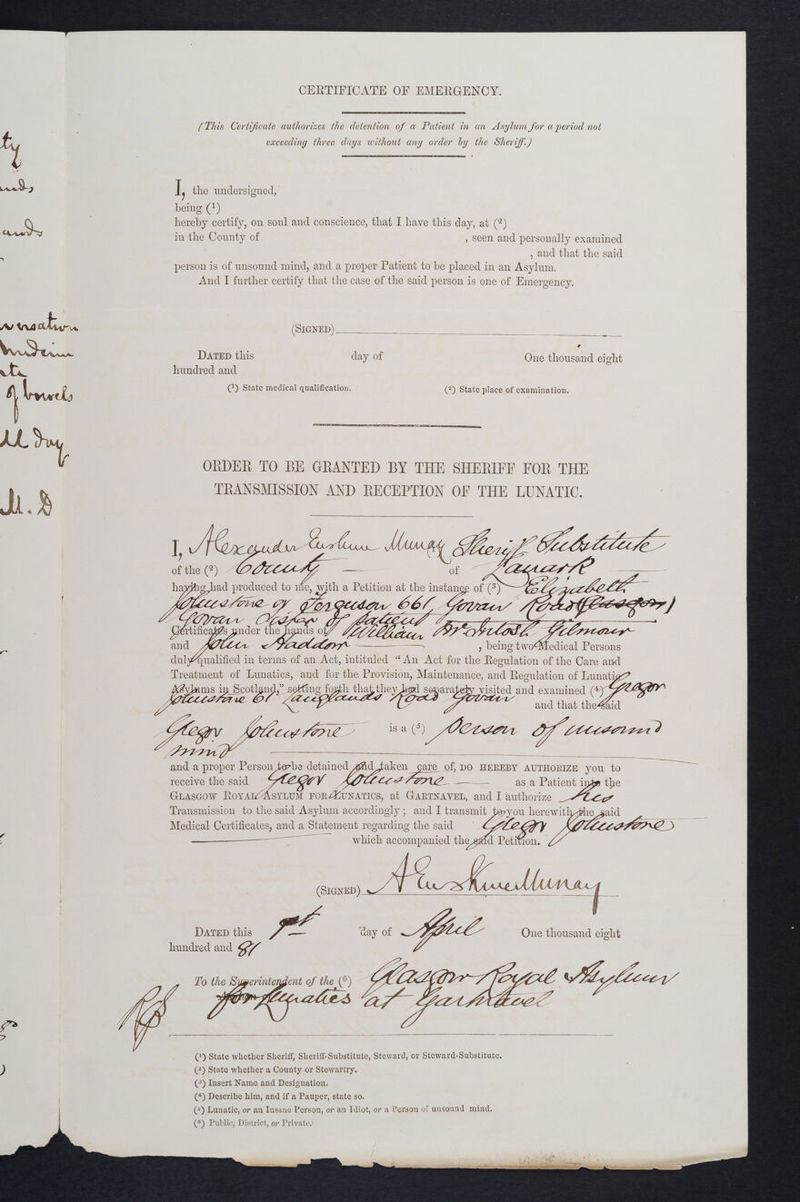 ty
CERTIFICATE OF EMERGENCY.
(This Certificate authorizes the detention of a Patient in an Asylum for a period not
exceeding three days without any order by the Sheriff.)
I, the undersigned,
being (¹)
hereby certify, on soul and conscience, that I have this day, at (²)
in the County of , seen and personally examined
, and that the said
person is of unsound mind, and a proper Patient to be placed in an Asylum.
And I further certify that the case of the said person is one of Emergency.
(SIGNED)
DATED this day of One thousand eight
hundred and
(¹) State medical qualification. (²) State place of examination.
of bowels
M.D
ORDER TO BE GRANTED BY THE SHERIFF FOR THE
TRANSMISSION AND RECEPTION OF THE LUNATIC.
I, Alexander Erskine Murray Sheriff Substitute
of the (²) County of Lanark
having had produced to me, with a Petition at the instance of (³) Elizabeth
Johnstone or Ferguson 661 Govan Road (Glasgow)
Govan of Patient
Certificates under the hands of William McIntosh Gilmour
and John Haddow , being two Medical Persons
duly qualified in terms of an Act, intituled "An Act for the Regulation of the Care and
Treatment of Lunatics, and for the Provision, Maintenance, and Regulation of Lunatic
Asylums in Scotland," setting forth that they had separately visited and examined (⁴) Gregor
Johnstone 61 Langlands Road Govan and that the said
Gregor Johnstone is a (⁵) Person of unsound
mind
and a proper Person to be detained and taken care of, DO HEREBY AUTHORIZE you to
receive the said Gregor Johnstone as a Patient into the
GLASGOW ROYAL ASYLUM FOR LUNATICS, at GARTNAVEL, and I authorize his
Transmission to the said Asylum accordingly; and I transmit to you herewith the said
Medical Certificates, and a Statement regarding the said Gregor Johnstone
which accompanied the said Petition.
(SIGNED) A Erskine Murray
DATED this 1st day of April One thousand eight
hundred and 81
To the Superintendent of the (⁶) Glasgow Royal Asylum
for Lunatics at Gartnavel
(¹) State whether Sheriff, Sheriff-Substitute, Steward, or Steward-Substitute.
(²) State whether a County or Stewartry.
(³) Insert Name and Designation.
(⁴) Describe him, and if a Pauper, state so.
(⁵) Lunatic, or an Insane Person, or an Idiot, or a Person of unsound mind.
(⁶) Public, District, or Private.